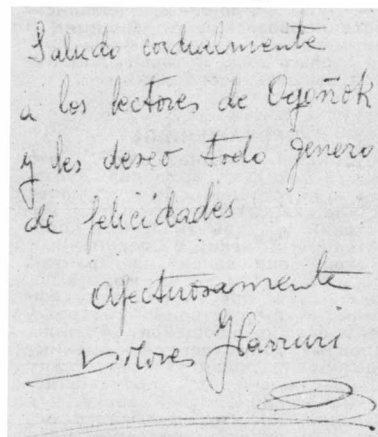 Saludo cordialmente
a los lectores de Ogoñok
y les deseo todo genero
de felicidades
Afectuosamente
Dolores Ibarruri